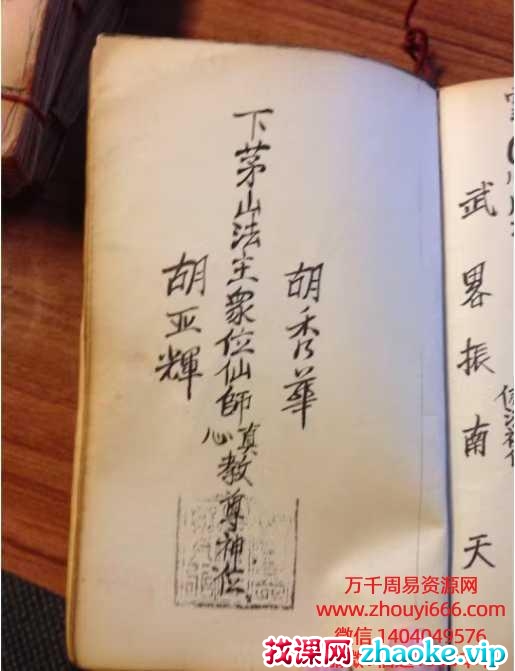 武畧振南天
胡秀華
下茅山法主衆位仙師真心教尊神位
胡亚輝
万千周易资源网
www.zhouyi666.com
微信 1404049576
找课网zhaoke.vip